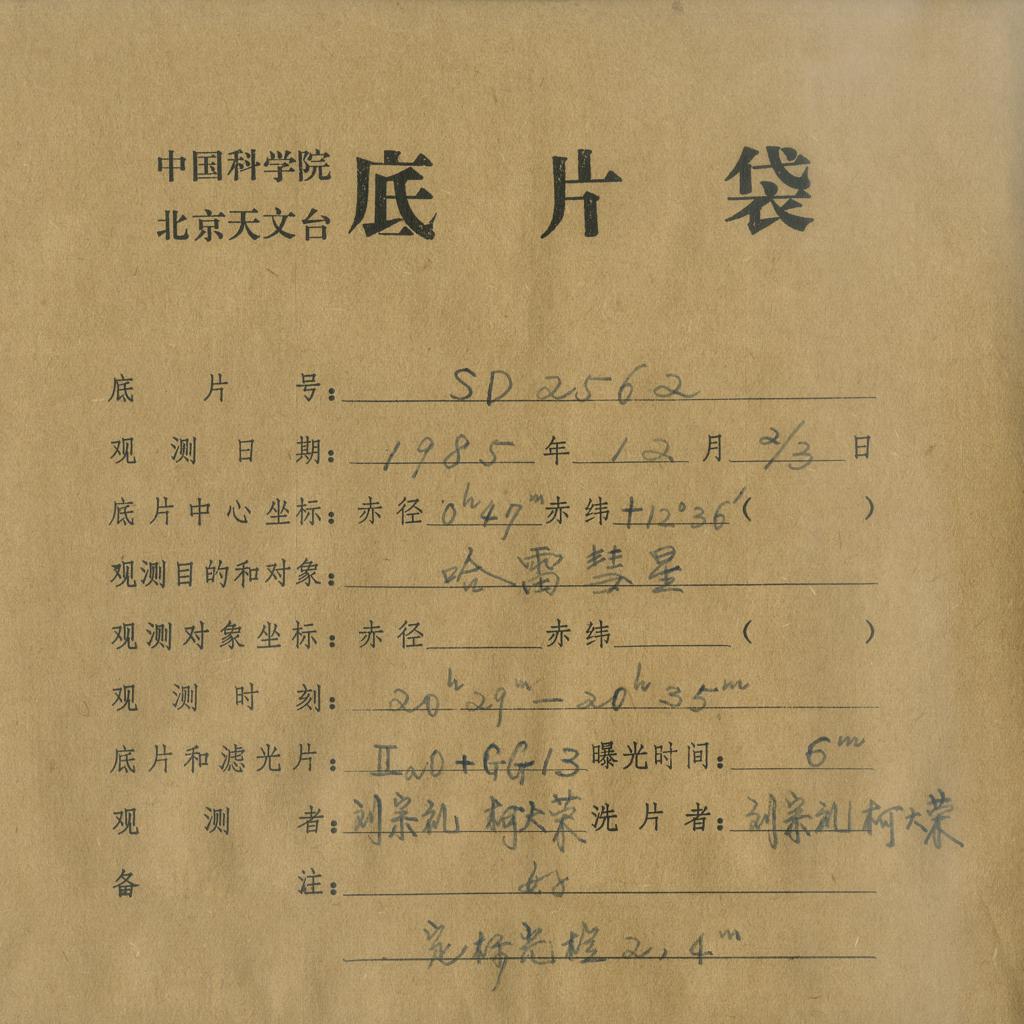 中国科学院
北京天文台
底片袋
底片号：SD 2562
观测日期：1985年12月2/3日
底片中心坐标：赤径 0ʰ47ᵐ 赤纬 +12°36′（ ）
观测目的和对象：哈雷彗星
观测对象坐标：赤径 赤纬 （ ）
观测时刻：20ʰ29ᵐ—20ʰ35ᵐ
底片和滤光片：ⅡaO+GG13 曝光时间：6ᵐ
观测者：刘宗礼 柯大荣 洗片者：刘宗礼 柯大荣
备注：好
定标光楔 2，4ᵐ